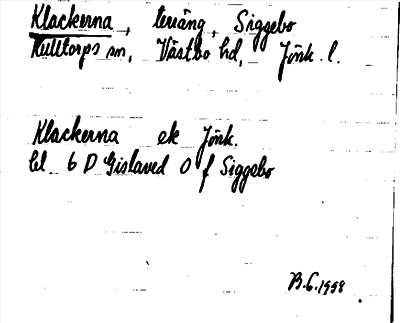 Klackerna, teräng, Siggebo
Kulltorps sn, Västbo hd, Jönk. l.
Klackerna ek Jönk.
bl 6 D Gislaved O f Siggebo
B.G. 1958